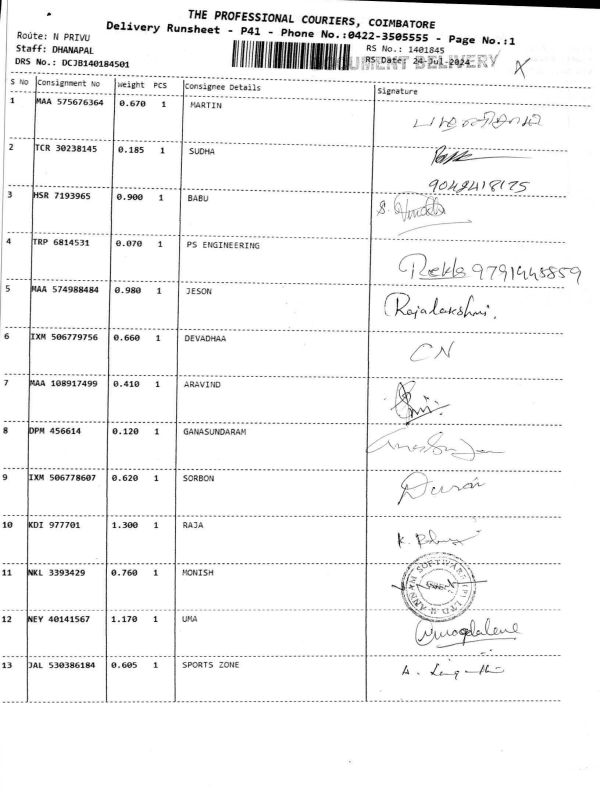 THE PROFESSIONAL COURIERS, COIMBATORE
Delivery Runsheet - P41 - Phone No.:0422-3505555 - Page No.:1
Route: N PRIVU
RS No.: 1401845
Staff: DHANAPAL
RS Date: 24-Jul-2024
DRS No.: DCJB140184501
DELIVERY
S No Consignment No Weight PCS Consignee Details Signature
1 MAA 575676364 0.670 1 MARTIN
2 TCR 30238145 0.185 1 SUDHA
9042418175
3 HSR 7193965 0.900 1 BABU
4 TRP 6814531 0.070 1 PS ENGINEERING
Rekha 9791445859
5 MAA 574988484 0.980 1 JESON Rajalakshmi.
6 IXM 506779756 0.660 1 DEVADHAA CN
7 MAA 108917499 0.410 1 ARAVIND
8 DPM 456614 0.120 1 GANASUNDARAM
9 IXM 506778607 0.620 1 SORBON Durai
10 KDI 977701 1.300 1 RAJA
11 NKL 3393429 0.760 1 MONISH SOFTWARE (P) LTD
12 NEY 40141567 1.170 1 UMA
13 JAL 530386184 0.605 1 SPORTS ZONE